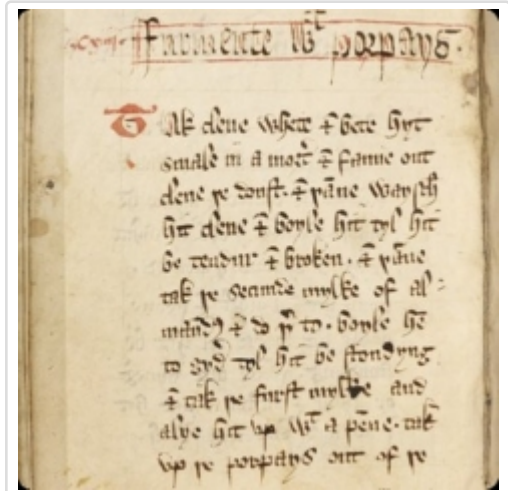 .cxvi. Furmente wt porpays.
Tak clene whete & bete hyt
smale in a mortr & fanne out
clene þe doust. & þāne waysch
hit clene & boyle hit tyl hit
be tendur & broken. & þāne
tak þe secunde mylke of al=
maūd & do þr to. boyle hē
to gydr tyl hit be stondyng
& tak þe furst mylke and
alye hit up wt a pēne. tak
up þe porpays out of þe